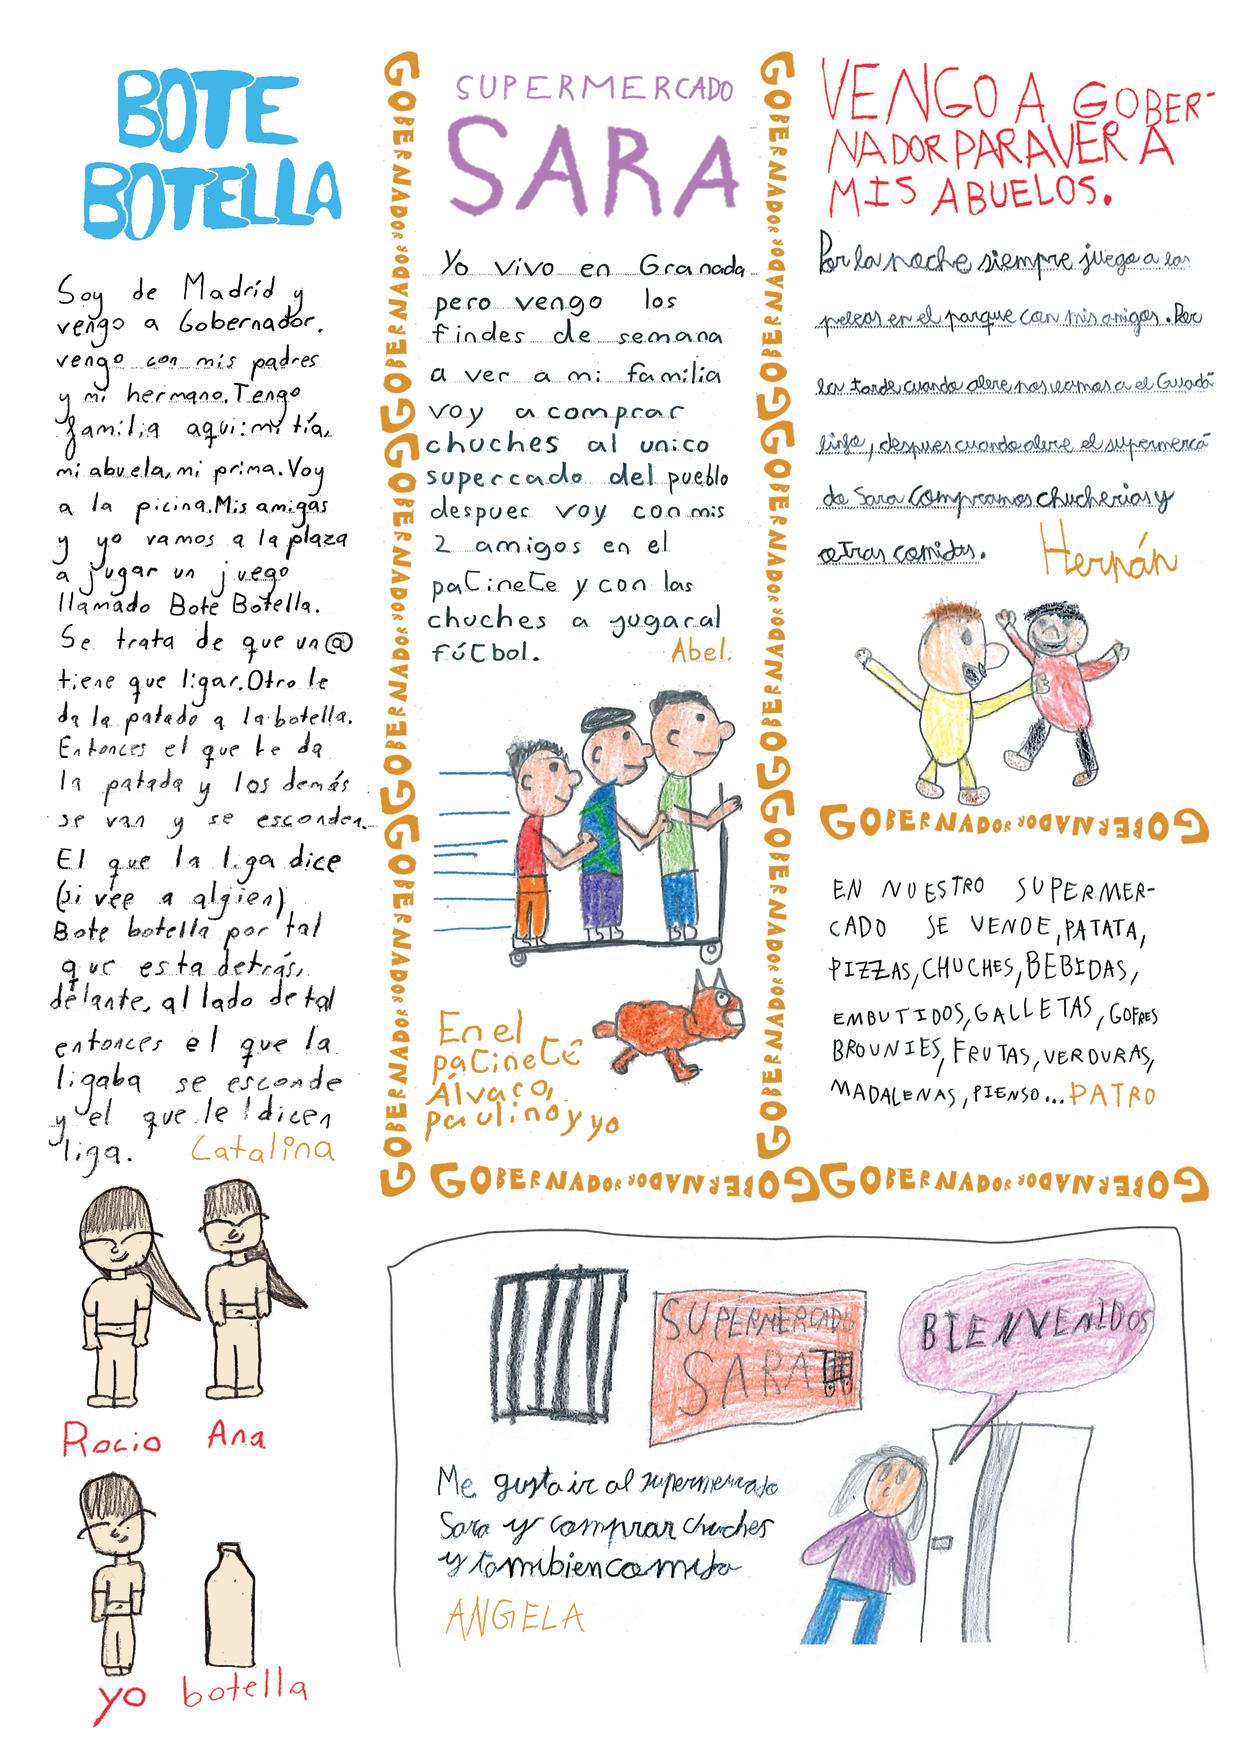 BOTE
BOTELLA
Soy de Madrid y
vengo a Gobernador.
vengo con mis padres
y mi hermano. Tengo
familia aqui: mi tía,
mi abuela, mi prima. Voy
a la picina. Mis amigas
y yo vamos a la plaza
a jugar un juego
llamado Bote Botella.
Se trata de que un@
tiene que ligar. Otro le
da la patado a la botella.
Entonces el que le da
la patada y los demás
se van y se esconden.
El que la liga dice
(si vee a algien)
Bote botella por tal
que esta detrás,
delante, al lado de tal
entonces el que la
ligaba se esconde
y el que le dicen
liga. Catalina
Rocio Ana
yo botella
GOBERNADOR
SUPERMERCADO
SARA
Yo vivo en Granada
pero vengo los
findes de semana
a ver a mi familia
voy a comprar
chuches al unico
supercado del pueblo
despues voy con mis
2 amigos en el
patinete y con las
chuches a jugar al
fútbol. Abel.
En el
patinete
Álvaro,
paulino y yo
GOBERNADOR
VENGO A GOBER-
NADOR PARA VER A
MIS ABUELOS.
Por la noche siempre juego a las
peleas en el parque con mis amigos. Por
la tarde cuando abre nos vamos a el Guada
linfo, despues cuando abre el supermerca
do Sara compramos chucherias y
otras comidas. Hernán
GOBERNADOR GOBERNADOR
EN NUESTRO SUPERMER-
CADO SE VENDE, PATATA,
PIZZAS, CHUCHES, BEBIDAS,
EMBUTIDOS, GALLETAS, GOFRES
BROUNIES, FRUTAS, VERDURAS,
MADALENAS, PIENSO... PATRO
GOBERNADOR GOBERNADOR GOBERNADOR GOBERNADOR
SUPERMERCADO
SARA
BIENVENIDOS
Me gusta ir al supermercado
Sara y comprar chuches
y tambien comida
ANGELA